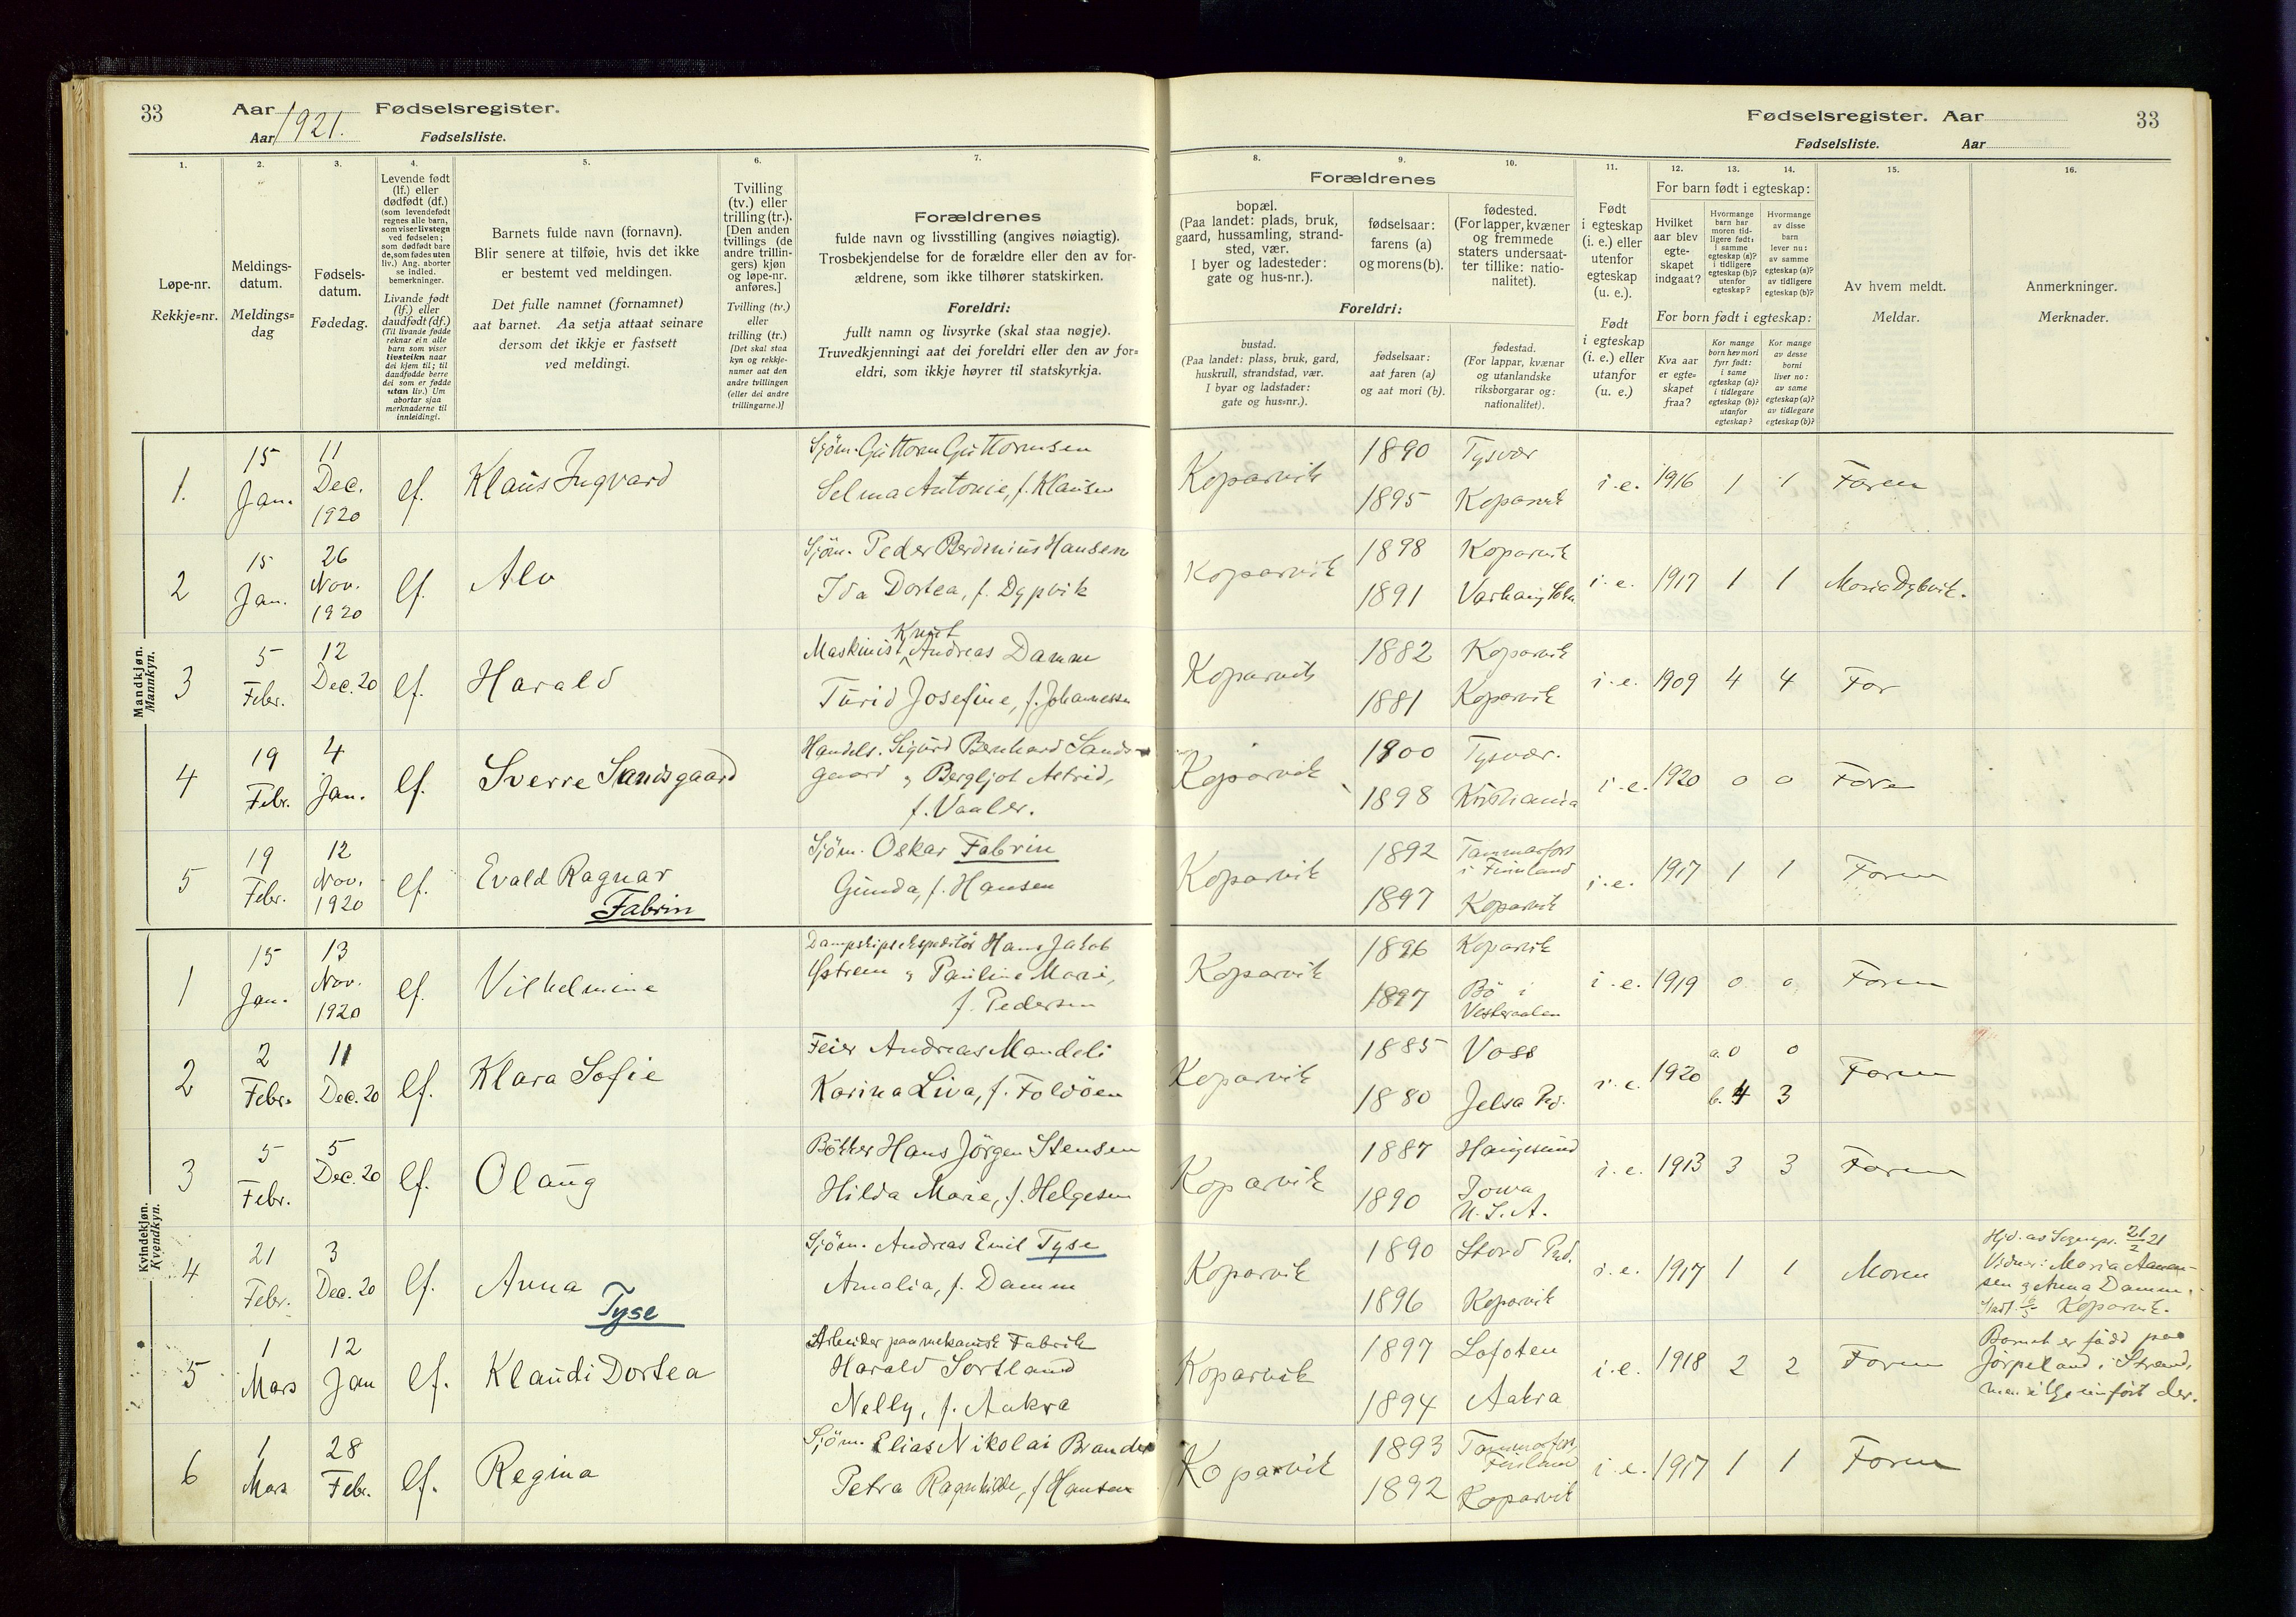 33
Aar 1921. Fødselsregister.
Aar Fødselsliste.
Fødselsregister. Aar
Fødselsliste. Aar
33
1.
2.
3.
4.
5.
6.
7.
8.
9.
10.
11.
12.
13.
14.
15.
16.
Løpe-nr.
Rekkje=nr.
Meldings-
datum.
Meldings=
dag
Fødsels-
datum.
Fødedag.
Levende født
(lf.) eller
dødfødt (df.)
(som levendefødt
regnes alle barn,
som viser livstegn
ved fødselen;
som dødfødt bare
de, som fødes uten
liv.) Ang. aborter
se indled.
bemerkninger.
Livande født
(lf.) eller
daudfødt (df.)
(Til livande fødde
reknar ein alle
barn som viser
livsteikn naar
dei kjem til; til
daudfødde berre
dei som er fødde
utan liv.) Um
abortar sjaa
merknaderne til
innleidingi.
Barnets fulde navn (fornavn).
Blir senere at tilføie, hvis det ikke
er bestemt ved meldingen.
Det fulle namnet (fornamnet)
aat barnet. Aa setja attaat seinare
dersom det ikkje er fastsett
ved meldingi.
Tvilling
(tv.) eller
trilling (tr.).
[Den anden
tvillings (de
andre trillin-
gers) kjøn
og løpe-nr.
anføres.]
Tvilling (tv.)
eller
trilling (tr.)
[Det skal staa
kyn og rekkje-
numer aat den
andre tvillingen
(eller dei andre
trillingarne.)]
Forældrenes
fulde navn og livsstilling (angives nøiagtig).
Trosbekjendelse for de forældre eller den av for-
ældrene, som ikke tilhører statskirken.
Foreldri:
fullt namn og livsyrke (skal staa nøgje).
Truvedkjenningi aat dei foreldri eller den av for=
eldri, som ikkje høyrer til statskyrkja.
Forældrenes
bopæl.
(Paa landet: plads, bruk,
gaard, hussamling, strand-
sted, vær.
I byer og ladesteder:
gate og hus-nr.).
fødselsaar:
farens (a)
og morens (b).
fødested.
(For lapper, kvæner
og fremmede
staters undersaat-
ter tillike: natio-
nalitet).
Foreldri:
bustad.
(Paa landet: plass, bruk, gard,
huskrull, strandstad, vær.
I byar og ladstader:
gate og hus=nr.).
fødselsaar:
aat faren (a)
og aat mori (b).
fødestad.
(For lappar, kvænar
og utanlandske
riksborgarar og:
nationalitet).
Født
i egteskap
(i. e.) eller
utenfor
egteskap
(u. e.).
Født
i egteskap
(i. e.) eller
utanfor
(u. e.)
For barn født i egteskap:
Hvilket
aar blev
egte-
skapet
indgaat?
Hvormange
barn har
moren tid-
ligere født:
i samme
egteskap (a)?
i tidligere
egteskap (b)?
utenfor
egteskap?
Hvormange
av disse
barn
lever nu:
av samme
egteskap (a)?
av tidligere
egteskap (b)?
For born født i egteskap:
Kva aar
er egte=
skapet
fraa?
Kor mange
born hev mori
fyrr født:
i same
egteskap (a)?
i tidlegare
egteskap (b)?
utanfor
egteskap?
Kor mange
av desse
borni
liver no:
av same
egteskap (a)?
av tidlegare
egteskap (b)?
Av hvem meldt.
Meldar.
Anmerkninger.
Merknader.
Mandkjøn.
Mannkyn.
1. 15 Jan. 11 Dec. 1920 lf. Klaus Ingvard
Sjøm. Guttorm Guttormsen
Selma Antonie, f. Klausen
Koparvik 1890 Tysvær
1895 Koparvik
i.e. 1916 1 1 Faren
2 15 Jan. 26 Nov. 1920 lf. Alv
Sjøm. Peder Berdinius Hansen
Ida Dortea, f. Dypvik
Koparvik 1898 Koparvik
1891
i.e. 1917 1 1 Maria Dybvik.
3 5 Febr. 12 Dec. 20 lf. Harald
Maskinist Knut Andreas Damm
Turid Josefine, f. Johannessen
Koparvik 1882 Koparvik
1881 Koparvik
i.e. 1909 4 4 Far
4 19 Febr. 4 Jan. lf. Sverre Sandsgaard
Handels. Sigurd Bernhard Sands-
gaard og Bergljot Astrid,
f. Vaaler.
Koparvik 1900 Tysvær.
1898 Kristiania
i.e. 1920 0 0 Faren
5 19 Febr. 12 Nov. 1920 lf. Evald Ragnar
Fabrin
Sjøm. Oskar Fabrin
Gunda, f. Hansen
Koparvik 1892 Tammerfors
i Finland
1897 Koparvik
i.e. 1917 1 1 Faren
Kvindekjøn.
Kvendkyn.
1 15 Jan. 13 Nov. 1920 lf. Vilhelmine
Dampskipsekspeditør Hans Jakob
Østrem og Pauline Marie,
f. Pedersen
Koparvik 1896 Koparvik
1897 Bö i
Vesteraalen
i.e. 1919 0 0 Faren
2 2 Febr. 11 Dec. 20 lf. Klara Sofie
Feier Andreas Mandeli
Karina Liva, f. Foldöen
Koparvik 1885 Voss
1880 Jelsa Pd.
i.e. 1920 a. 0 0
b. 4 3 Faren
3 5 Febr. 5 Dec. 20 lf. Olaug
Bökker Hans Jörgen Stensen
Hilda Marie, f. Helgesen
Koparvik 1887 Haugesund
1890 Iowa
U.S.A.
i.e. 1913 3 3 Faren
4 21 Febr. 3 Dec. 20 lf. Anna
Tyse
Sjøm. Andreas Emil Tyse
Amalia, f. Damm
Koparvik 1890 Stord Pd.
1896 Koparvik
i.e. 1917 1 1 Moren
Hjd. av Sognepr. 21/2 21
Vidner: Maria Aanen-
sen og Anna Damm.
Koparvik.
5 1 Mars 12 Jan lf. Klaudi Dortea
Arbeider paa mekanisk Fabrik
Harald Sortland
Nelly, f. Aakra
Koparvik 1897 Lofoten
1894 Aakra
i.e. 1918 2 2 Faren
Barnet er född paa
Jörpeland i Strand,
men ikke innfört der.
6 1 Mars 28 Febr. lf. Regina
Sjøm. Elias Nikolai Brander
Petra Ragnhilde, f. Hansen
Koparvik 1893 Tammerfors,
Finland
1892 Koparvik
i.e. 1917 1 1 Faren